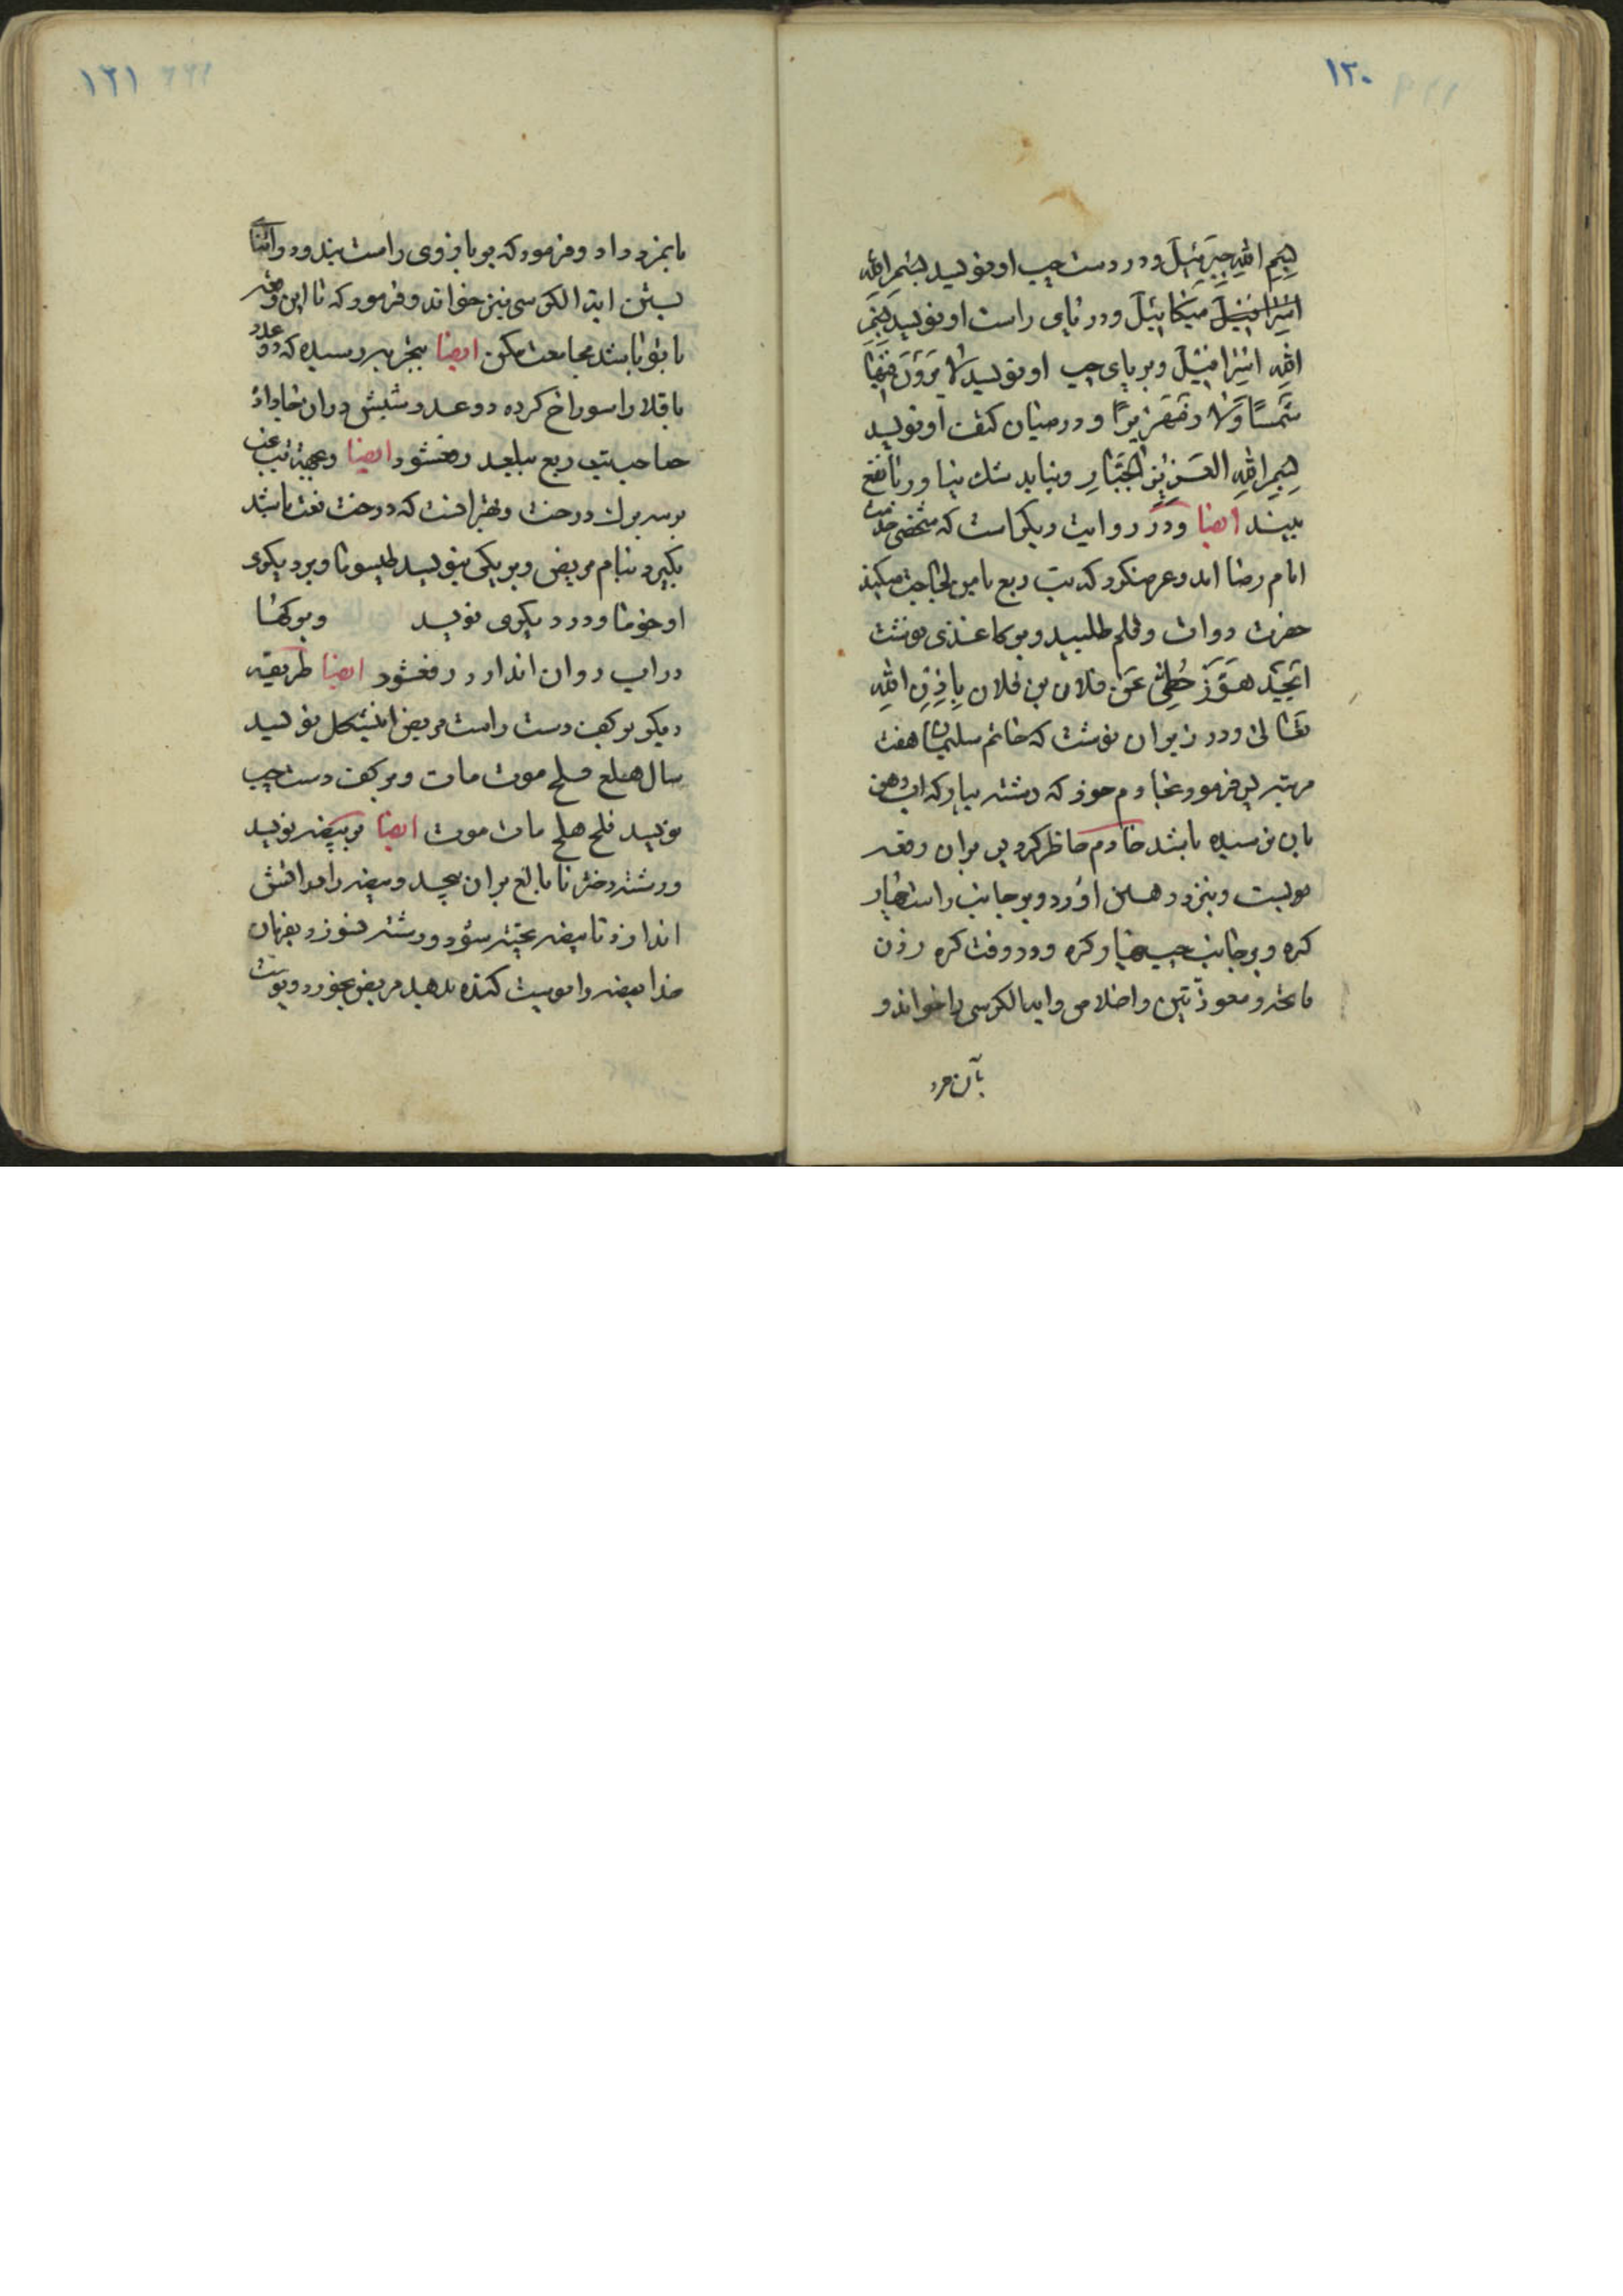 ١٢٠
بِسْمِ اللّهِ جِبْرَئيلَ و در دست چپ او نویسد بِسْمِ اللّهِ
اِسْرافیلَ میکائیلَ و در پای راست او نویسد بِسْمِ
اللّهِ اِسْرافیلَ و بر پای چپ او نویسد لا یَرَوْنَ فیها
شَمْسًا وَلا زَمْهَریرًا و در میان کتف او نویسد
بِسْمِ اللّهِ العَزیزِ الجَبّارِ و نباید شک بیاورد تا نفع
بیند ایضا و در روایت دیگر است که شخصی خدمت
امام رضا امد و عرض کرد که تب ربع با من لجاجت میکند
حضرت دوات و قلم طلبید و بر کاغذی نوشت
اَبْجَدْ هَوَّزْ حُطّی عَنْ فلان بن فلان بِاِذْنِ اللّهِ
تَعالی و در زیر ان نوشت که خاتم سلیمان هفت
مرتبه پس فرمود بخادم خود که رشته بیار که اب دهن
بان نرسیده باشد خادم حاظر کرد پس بران رقعه
بربست و بنزد دهن اورد و بر جانب راست چهار
کره و بر جانب چپ چهار کره و در وقت کره زدن
فاتحه و معوذتین و اخلاص و ایه الکرسی را خواند و
بآن مرد
١٢١
بانمرد داد و فرمود که بر بازوی راست بندد و در اثنای
بستن ایة الکرسی نیز خواند و فرمود که تا این رقعه
با تو باشد مجامعت مکن ایضا بتجربه رسیده که دو عدد
باقلا را سوراخ کرده دو عدد شپش در ان جا داده
صاحب تب ربع ببلعد رفع شود ایضا و بجهة تب غب
بر سه برک درخت که درخت باشد
بگیرد بنام مریض و بر یکی بنویسد طیسوما و بر دیکری
اوخوما و در دیکری نویسد و بر کها
در اب روان اندازد رفع شود ایضا طریقه
دیکر بر کف دست راست مریض نویسد
سال هبلع فلح موت مات و بر کف دست چپ
نویسد فلح هلح مات موت ایضا بر بیضه نویسد
و رشته دختر نابالغ بران پیچد و بیضه را در اتش
اندازد تا بیضه پخته شود و رشته نسوزد بفرمان
خدا بیضه را پوست کنده بدهید مریض بخورد و پوست